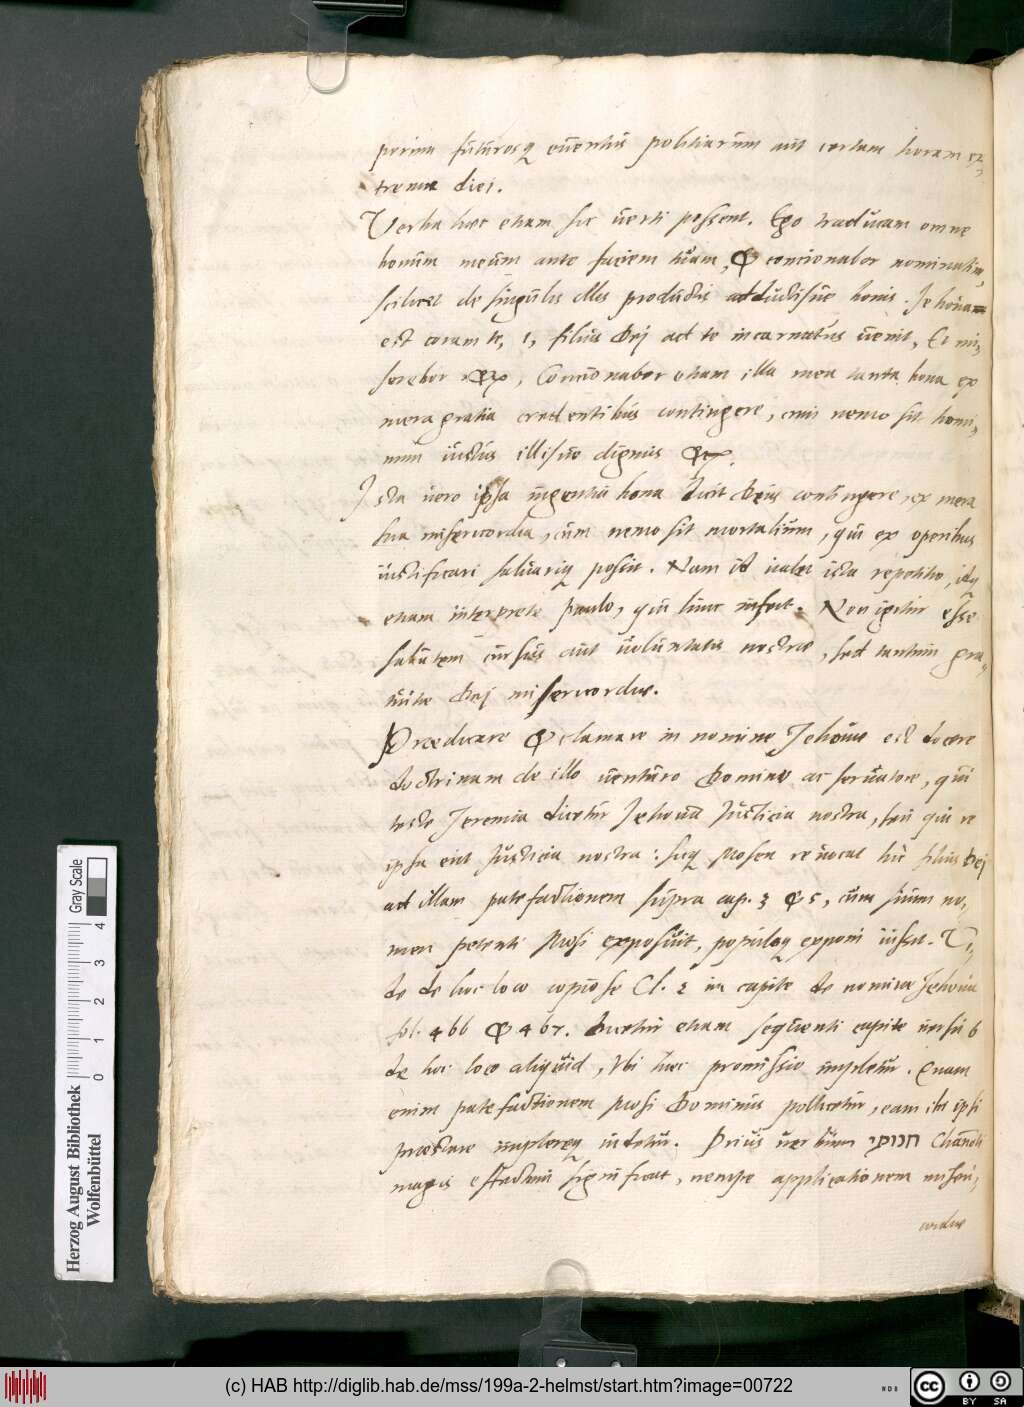 perium futurosq eventus politiarum aut certam horam ex,
tremae diei.
Verba haec etiam sic verti possent. Ego traducam omne
bonum meum ante faciem tuam, & concionabor nominatim,
scilicet de singulis illis productis adductisue bonis. Jehova
est coram te, i, filius Dei ad te incarnatus venit, Et mi,
serebor &c, Concionabor etiam illa mea tanta bona ex
mera gratia credentibus contingere, cum nemo sit homi,
num iustus illisue dignus &c.
Ista vero ipsa ingentia bona dicit Deus contingere, ex mera
sua misericordia, cum nemo sit mortalium, qui ex operibus
iustificari salvariq possit. Nam id valet ista repetitio, idq
etiam interprete Paulo, qui hinc infert. Non igitur esse
salutem cursus aut voluntatis nostrae, sed tantum gra,
tuitae Dei misericordiae.
Praedicare & clamare in nomine Jehovae est docere
doctrinam de illo venturo Domino ac servatore, qui
teste Jeremia dicetur Jehova Justicia nostra, seu qui re
ipsa erit Justicia nostra: sicq Mosen revocat hic filius Dei
ad illam patefactionem supra cap. 3 & 5, cum suum no,
men petenti Mosi exposuit, populoq exponi iussit. Vi,
de de hoc loco copiose Cl. 2 in capite de nomine Jehova
fol. 466 & 467. Dicetur etiam sequenti capite versu 6
de hoc loco aliquid, Ubi haec promissio impletur. Quam
enim patefactionem Mosi Dominus pollicetur, eam ibi ipsi
praestare implereq videtur. Prius verbum חנותי Chanoti
magis effectum significat, nempe applicationem miseri,
cordiae
Herzog August Bibliothek
Wolfenbüttel
Gray Scale
0 1 2 3 4
(c) HAB http://diglib.hab.de/mss/199a-2-helmst/start.htm?image=00722
BY SA